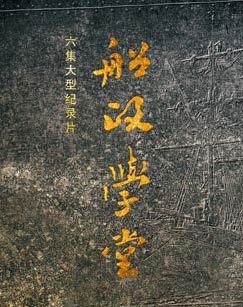 六集大型纪录片
船政学堂